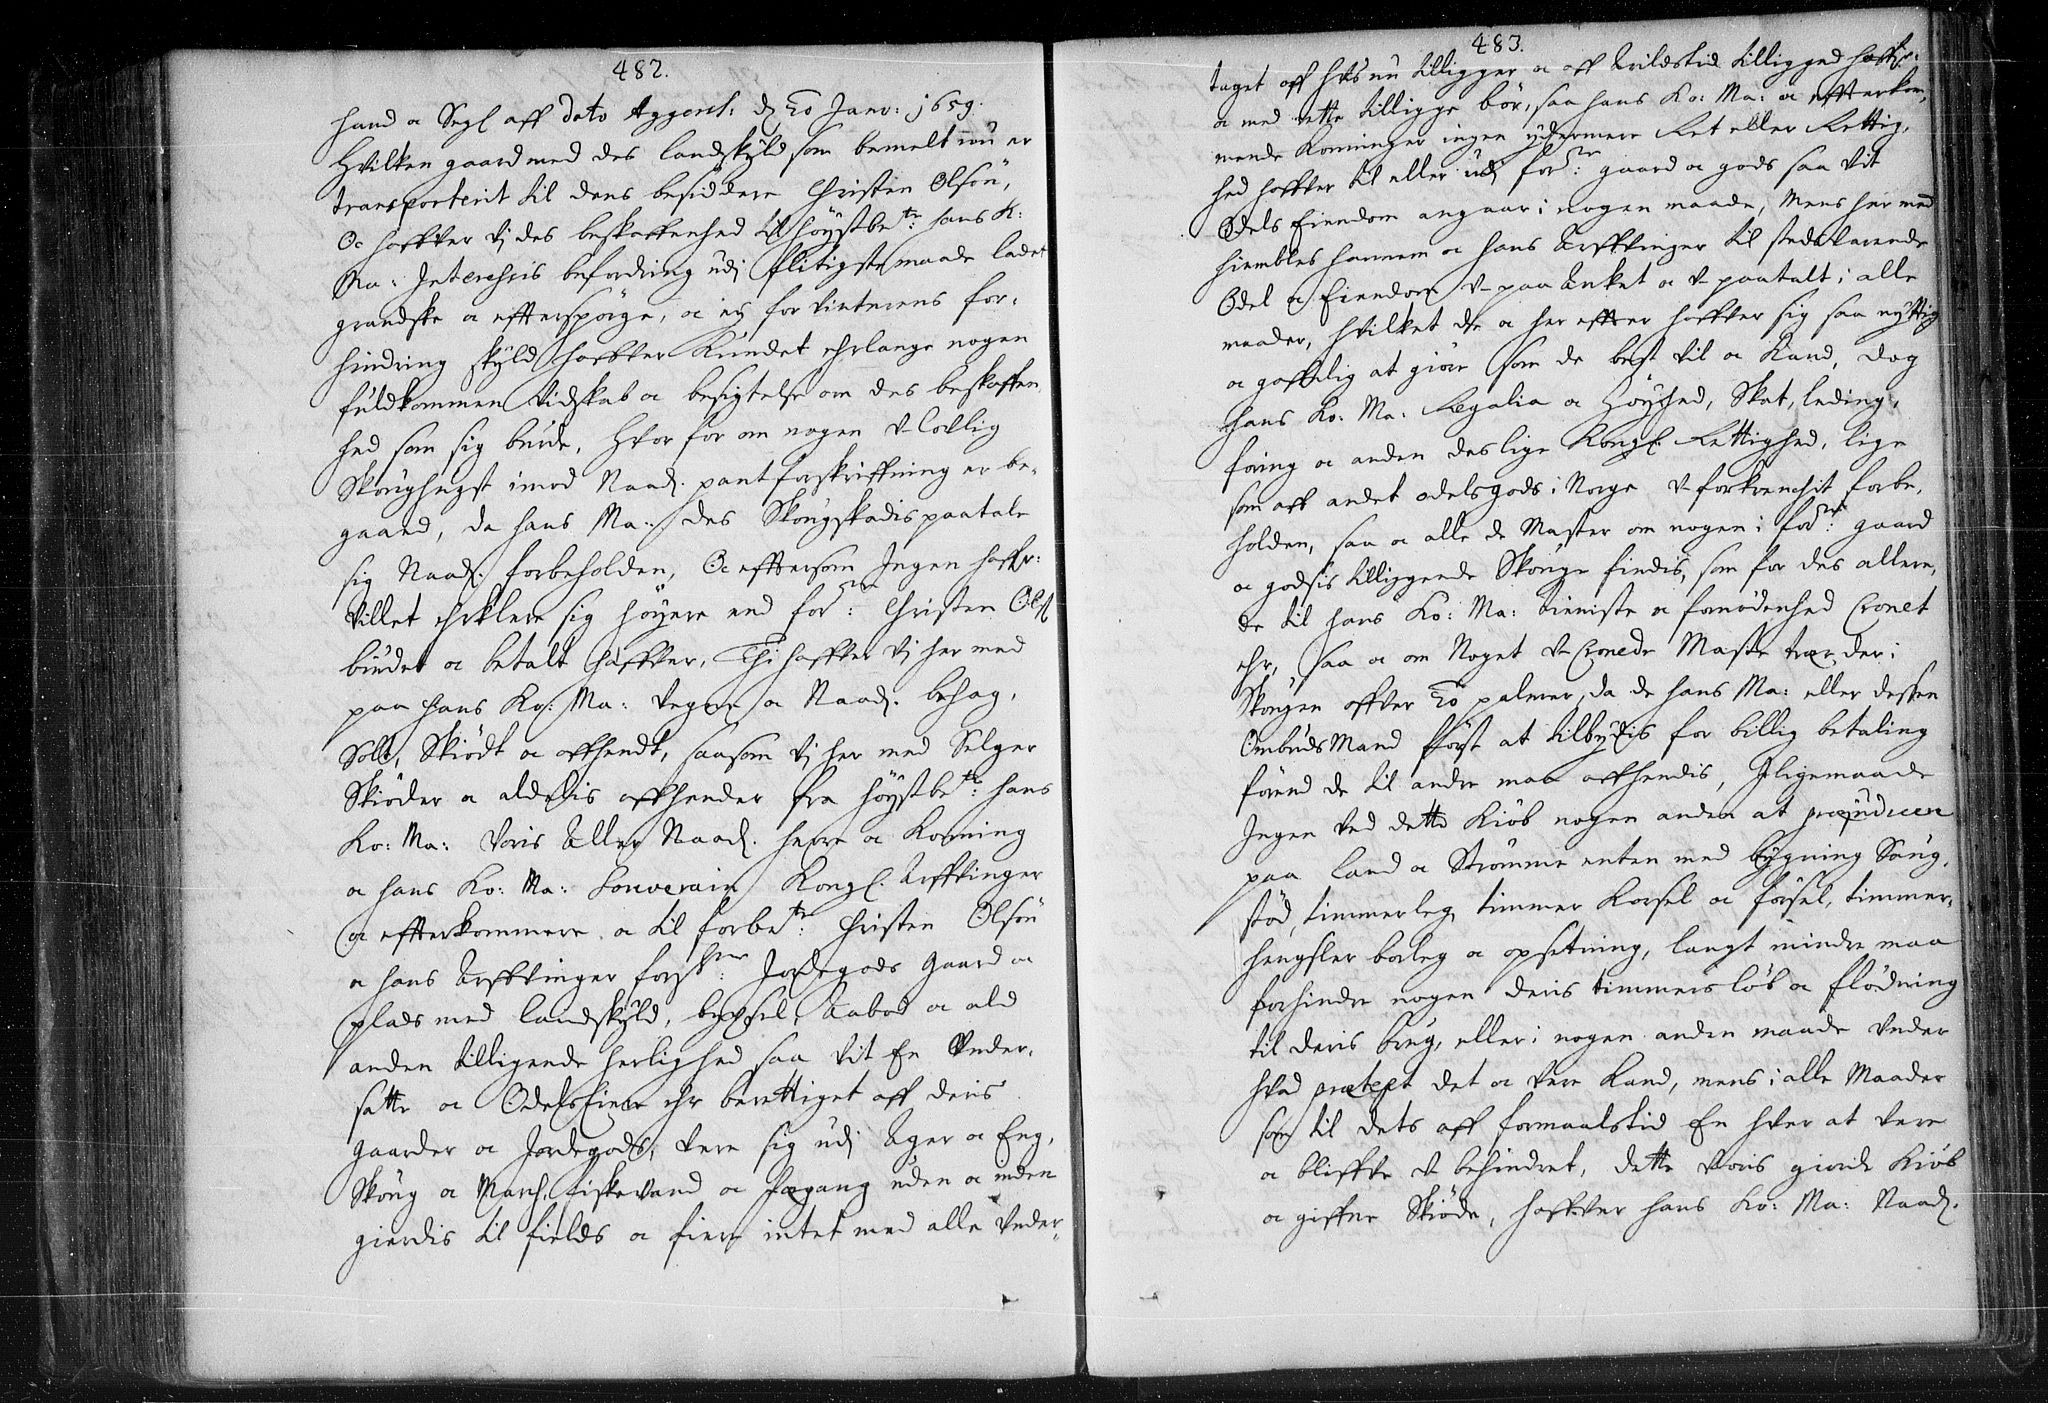 482.
hand oc Segl aff Dato Aggersh: d 20 Janv: 1659.
Hvilken gaard med des landskyld som bemelt nu er
transporterit til dens besiddere Christen Olsøn,
Oc haffver vj des beskaffenhed til høystbete: hans K:
Ma: Interessis befordring udj flitigste maade ladet
grandske oc efterspørge, oc ej for vinterens for-
hindring skyld haffver kundet ehrlange nogen
fuldkommen vidskab oc besigtelse om des beskaffen-
hed som sig burde, Hvorfor om nogen v-lovlig
Skoughugst imod Naad. pantforskriffning er be-
gaaed, da hans Ma: des Skougskadis paatale
sig Naad. forbeholden, Oc eftersom Ingen haffr:
villet ehrklere sig høyere end forne: Christen Olsø
budet oc betalt haffver, Thi haffver vj her med
paa hans Ko: Ma: vegne oc Naad. behag,
Sold, Skiødt oc affhendt, saasom vj her med Selger
Skiøder oc aldelis affhender fra høystbete: hans
Ko: Ma: voris Aller Naad. herre oc Konning
oc hans Ko: Ma: Souverain Kongl. Arffvinger
oc efterkommere oc til forbete: Christen Olsøn
oc hans Arffvinger forschne: Jordegods gaard oc
plads med landskyld, bygsel, Aabod oc ald
anden tilligende herlighed saa vit En Under-
satte oc Odelseiere ehr berettiget aff deris
gaarder oc Jordegods, vere sig udj Ager oc Eng,
Skoug oc March, fiskevand oc fægang uden oc inden
gierdis til fields oc fiere intet med alle under-
483.
taget aff hvis nu tilligger oc aff Arildstid tilligged haffr:
oc med rette tilligge bør, saa hans Ko: Ma: oc efterkom-
mende Konninger ingen ydermere Ret eller Rettig-
hed haffver til eller udj forne: gaard oc gods saa vit
Odels Eiendom angaar i nogen maade, Mens her med
hiembles hannem oc hans Arffvinger til stedsvarende
Odel oc Eiendom v-paa Anket oc v-paatalt i alle
maader, hvilket de oc her efter haffver sig saa nyttig
oc gaffnlig at giøre som de best vil oc kand, dog
hans Ko: Ma: Regalia oc Høyhed, Skat, leding,
foring oc anden deslige Kongl. Rettighed, lige
som aff andet odelsgods i Norge v-forkrenchit forbe-
holden, saa oc alle de Master om nogen i forne: gaard
oc godsis tilliggende Skouge findis, som for des allere-
de til hans Ko: Ma: tieniste oc fornødenhed Cronet
ehr, saa oc om Noget v-Cronede Maste træer der i
Skougen offver 20 palmer, da de hans Ma: eller dessen
OmbudsMand først at tilbydis for billig betaling
førend de til andre maa affhendis, Iligemaade
Ingen ved dette Kiøb nogen anden at præjudicere
paa land oc Strømme enten med bygning Saug-
stød, timmerleg, timmer kørsel oc førsel, timmer-
hengsler borleg oc opsetning, langt mindre maa
forhindre nogen deris timmers løb oc flødning
til deris brug, eller i nogen anden maade under
hvad prætext det oc vere kand, mens i alle Maader
som til dets aff formaalstid En hver at vere
oc bliffve v-behindret, dette voris giorde Kiøb
oc giffne Skiøde, haffver hans Ko: Ma: Naad.